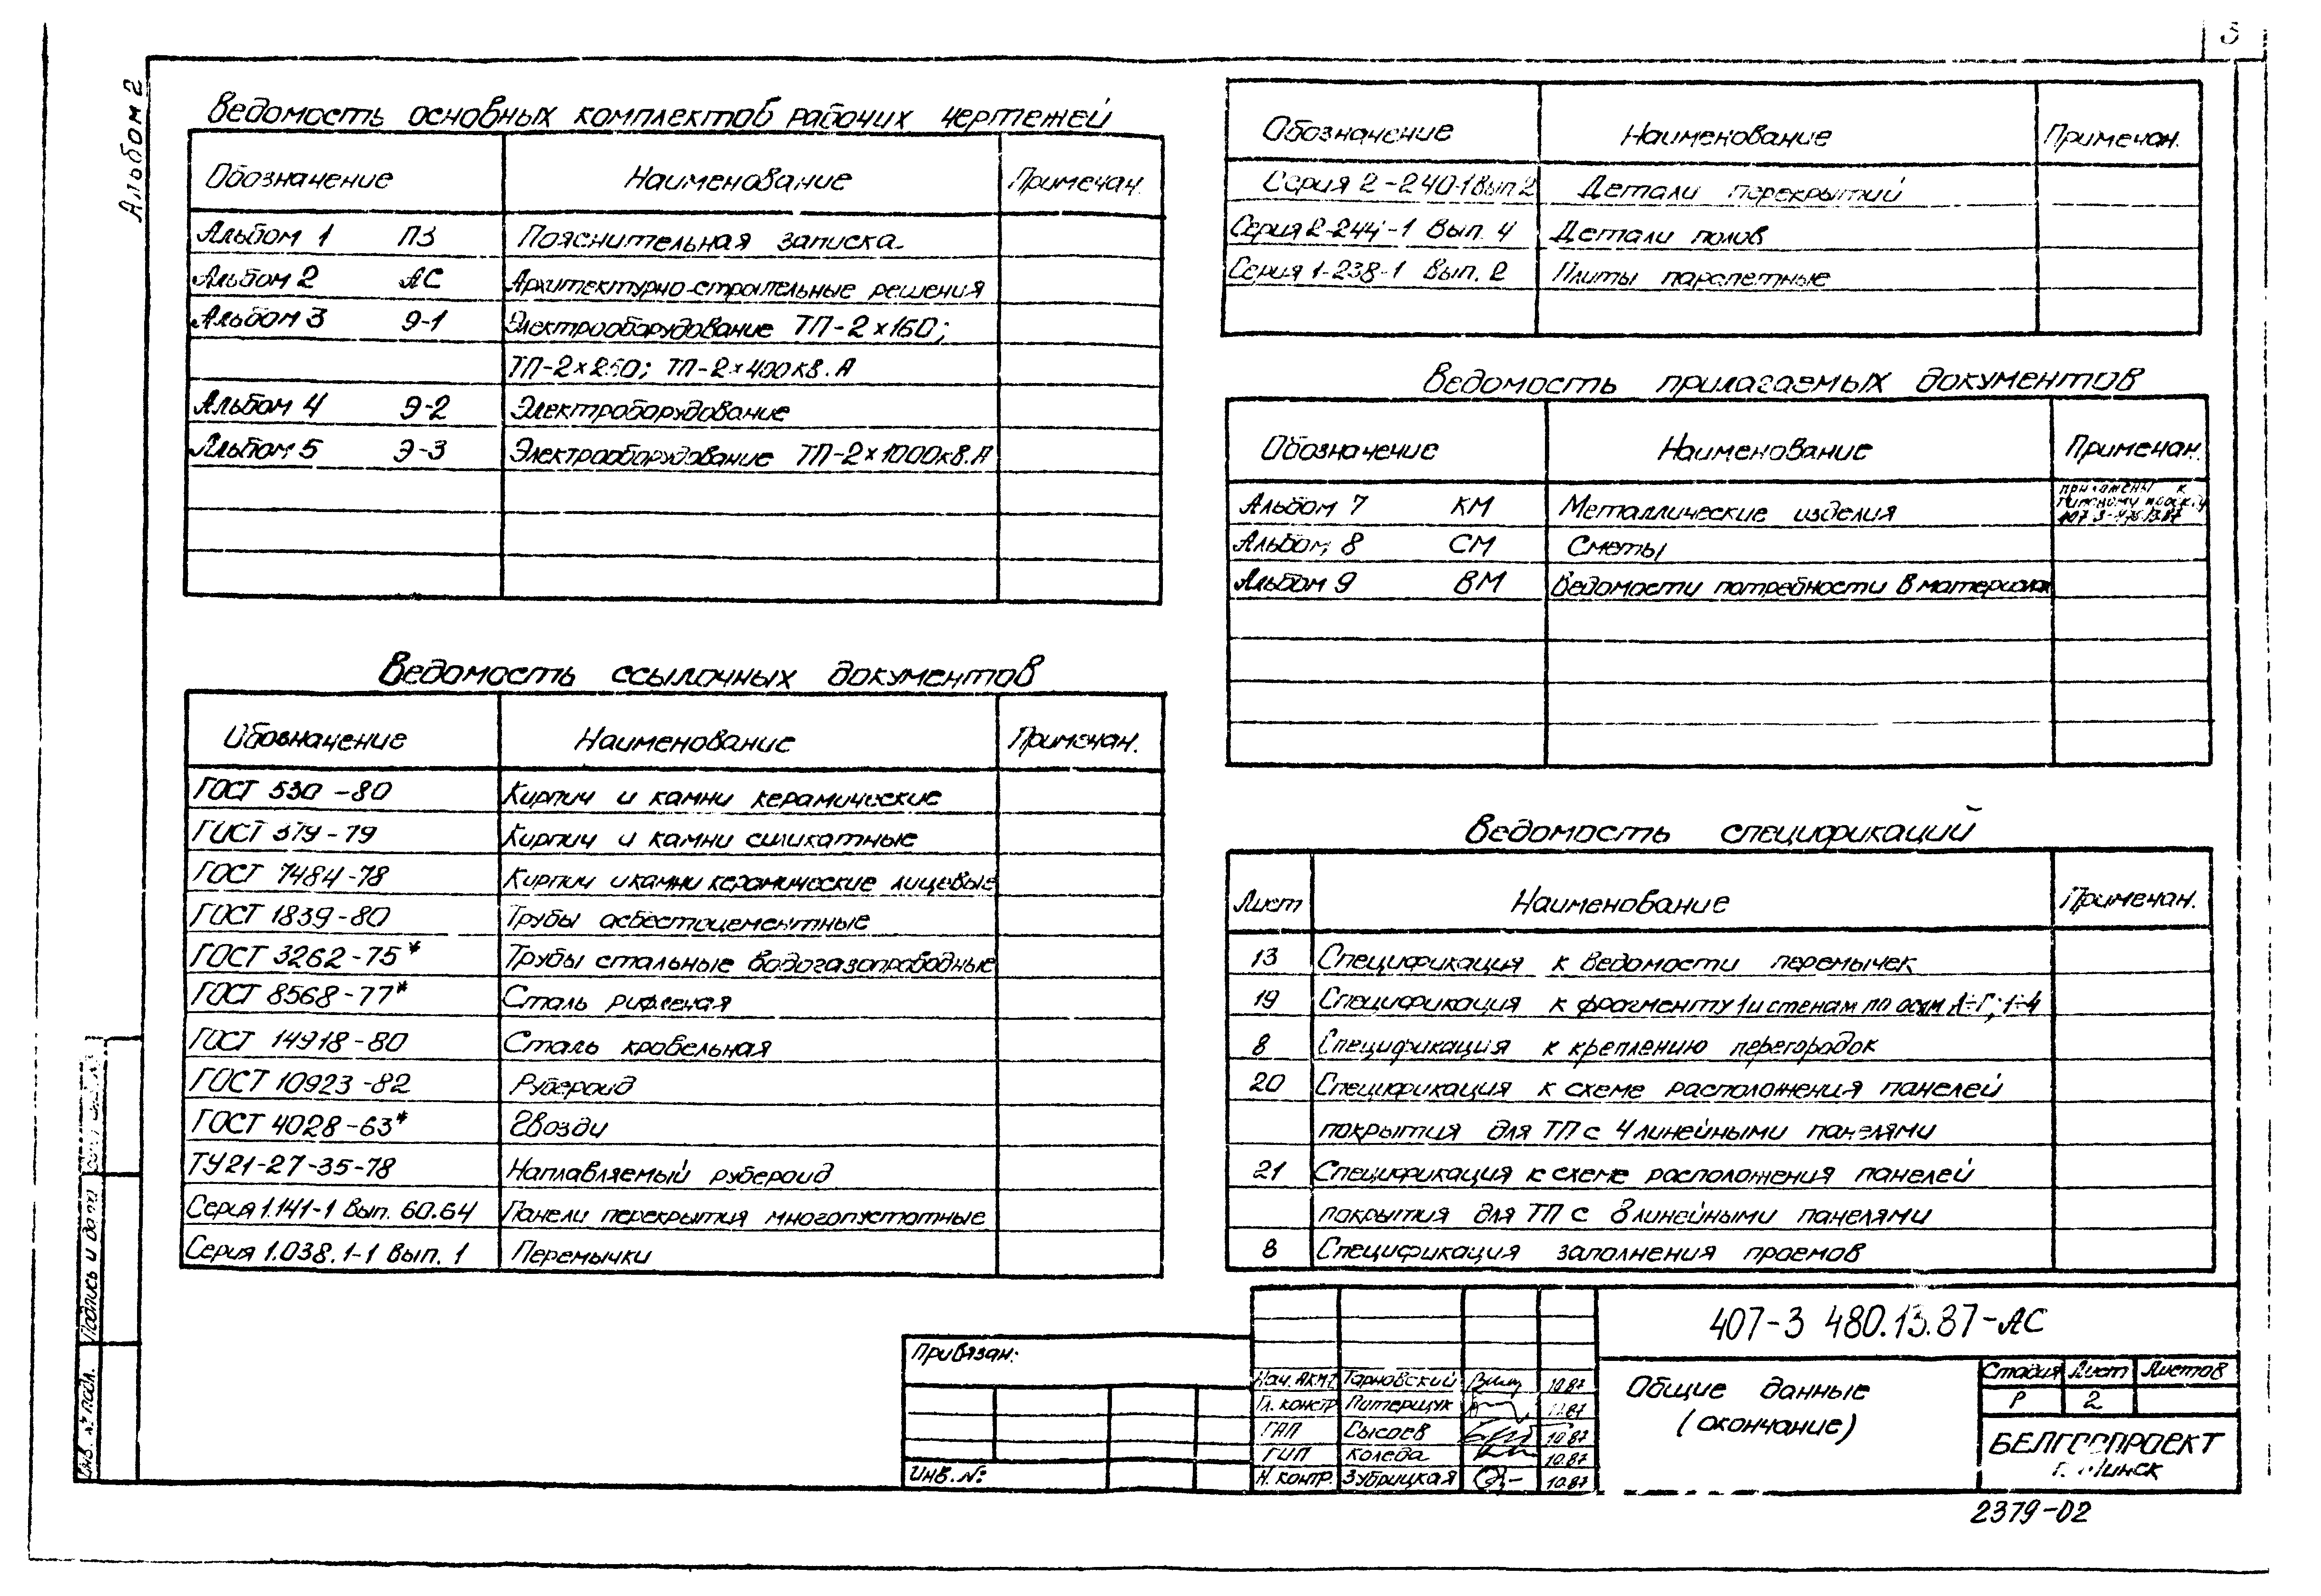 3
Альбом 2
Ведомость основных комплектов рабочих чертежей
Обозначение Наименование Примечан.
Альбом 1 ПЗ Пояснительная записка
Альбом 2 АС Архитектурно-строительные решения
Альбом 3 Э-1 Электрооборудование ТП-2×160;
ТП-2×250; ТП-2×400кв.А
Альбом 4 Э-2 Электроборудование
Альбом 5 Э-3 Электрооборудование ТП-2×1000кв.А
Ведомость ссылочных документов
Обозначение Наименование Примечан.
ГОСТ 530-80 Кирпич и камни керамические
ГОСТ 379-79 Кирпич и камни силикатные
ГОСТ 7484-78 Кирпич и камни керамические лицевые
ГОСТ 1839-80 Трубы асбестоцементные
ГОСТ 3262-75* Трубы стальные водогазопроводные
ГОСТ 8568-77* Сталь рифленая
ГОСТ 14918-80 Сталь кровельная
ГОСТ 10923-82 Рубероид
ГОСТ 4028-63* Гвозди
ТУ21-27-35-78 Наплавляемый рубероид
Серия 1.141-1 Вып. 60.64 Панели перекрытия многопустотные
Серия 1.038.1-1 Вып. 1 Перемычки
Обозначение Наименование Примечан.
Серия 2-240-1 Вып 2 Детали перекрытий
Серия 2-244-1 Вып. 4 Детали полов
Серия 1-238-1 Вып. 2 Плиты парапетные
Ведомость прилагаемых документов
Обозначение Наименование Примечан.
Альбом 7 КМ Металлические изделия приложены к
Альбом 8 СМ Сметы
Альбом 9 ВМ Ведомости потребности в материалах
Ведомость спецификаций
Лист Наименование Примечан.
13 Спецификация к ведомости перемычек
19 Спецификация к фрагменту 1 и стенам по осям А÷Г; 1÷4
8 Спецификация к креплению перегородок
20 Спецификация к схеме расположения панелей
покрытия для ТП с 4 линейными панелями
21 Спецификация к схеме расположения панелей
покрытия для ТП с 8 линейными панелями
8 Спецификация заполнения проемов
Привязан:
Инв. №:
Нач. АКМ Тарновский 10.87
Гл. констр Питерщук
ГАП Сысоев 10.87
ГИП Коледа 10.87
Н. контр. Зубрицкая 10.87
407-3 480.13.87-АС
Общие данные
(окончание)
Стадия Лист Листов
Р 2
БЕЛГОСПРОЕКТ
г. Минск
2379-02
Подпись и дата
Инв. № подл.